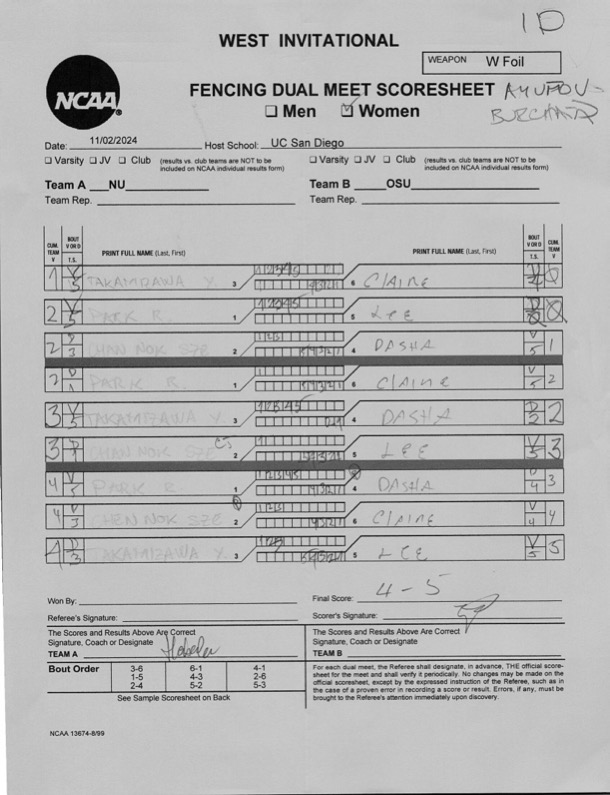 1D
WEST INVITATIONAL
WEAPON W Foil
NCAA
FENCING DUAL MEET SCORESHEET
Men Women
Date: 11/02/2024 Host School: UC San Diego
Varsity JV Club (results vs. club teams are NOT to be included on NCAA individual results form) Varsity JV Club (results vs. club teams are NOT to be included on NCAA individual results form)
Team A NU Team B OSU
Team Rep. Team Rep.
CUM. TEAM V BOUT V OR D T.S. PRINT FULL NAME (Last, First) PRINT FULL NAME (Last, First) BOUT V OR D T.S. CUM. TEAM V
1 V 5 TAKAMIZAWA Y. 3 6 CLAIRE 0
2 V 5 PARK R. 1 5 LEE 0
2 D 3 CHAN NOK SZE 2 4 DASHA V 5 1
2 D 1 PARK R. 1 6 CLAIRE V 5 2
3 V 5 TAKAMIZAWA Y. 3 4 DASHA D 2 2
3 D 1 CHAN NOK SZE 2 5 LEE V 5 3
4 V 5 PARK R. 1 4 DASHA D 4 3
4 3 CHEN NOK SZE 2 6 CLAIRE V 4 4
4 D 3 TAKAMIZAWA Y. 3 5 LEE V 5 5
Won By: Final Score: 4-5
Referee's Signature: Scorer's Signature:
The Scores and Results Above Are Correct The Scores and Results Above Are Correct
Signature, Coach or Designate Signature, Coach or Designate
TEAM A TEAM B
Bout Order 3-6 6-1 4-1
1-5 4-3 2-6
2-4 5-2 5-3
See Sample Scoresheet on Back
For each dual meet, the Referee shall designate, in advance, THE official score-
sheet for the meet and shall verify it periodically. No changes may be made on the
official scoresheet, except by the expressed instruction of the Referee, such as in
the case of a proven error in recording a score or result. Errors, if any, must be
brought to the Referee's attention immediately upon discovery.
NCAA 13674-8/99